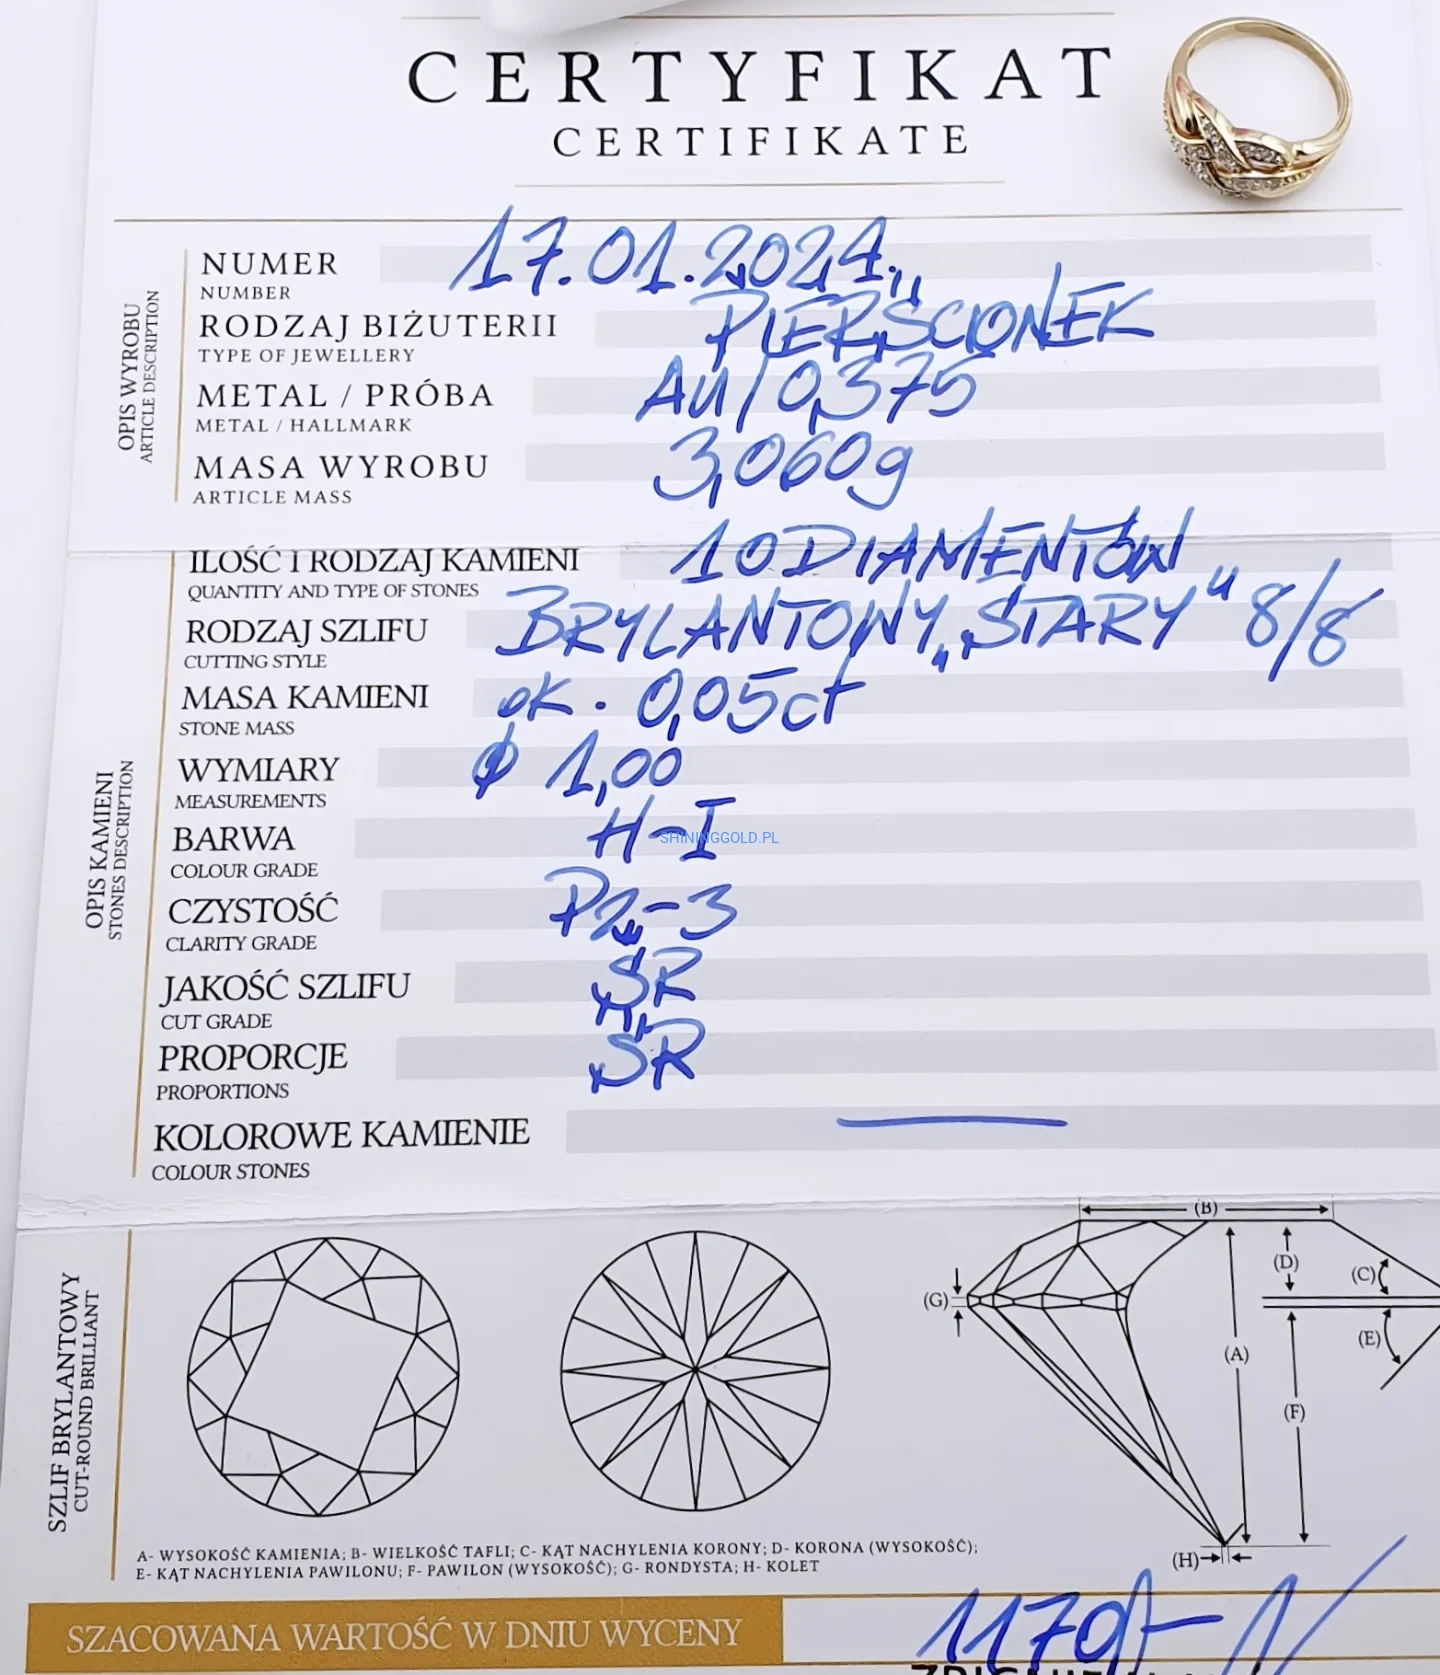 CERTYFIKAT
CERTIFIKATE
OPIS WYROBU
ARTICLE DESCRIPTION
NUMER 17.01.2024.
NUMBER
RODZAJ BIŻUTERII "PIERŚCIONEK"
TYPE OF JEWELLERY
METAL / PRÓBA Au/0,375
METAL / HALLMARK
MASA WYROBU 3,060g
ARTICLE MASS
OPIS KAMIENI
STONES DESCRIPTION
ILOŚĆ I RODZAJ KAMIENI 10 DIAMENTÓW
QUANTITY AND TYPE OF STONES
RODZAJ SZLIFU BRYLANTOWY „STARY" 8/8
CUTTING STYLE
MASA KAMIENI ok. 0,05ct
STONE MASS
WYMIARY ϕ 1,00
MEASUREMENTS
BARWA H-I
COLOUR GRADE
SHININGGOLD.PL
CZYSTOŚĆ P2-3
CLARITY GRADE
JAKOŚĆ SZLIFU "ŚR"
CUT GRADE
PROPORCJE "ŚR"
PROPORTIONS
KOLOROWE KAMIENIE
COLOUR STONES
SZLIF BRYLANTOWY
CUT-ROUND BRILLIANT
(B)
(D)
(C)
(G)
(E)
(A)
(F)
(H)
A- WYSOKOŚĆ KAMIENIA; B- WIELKOŚĆ TAFLI; C- KĄT NACHYLENIA KORONY; D- KORONA (WYSOKOŚĆ);
E- KĄT NACHYLENIA PAWILONU; F- PAWILON (WYSOKOŚĆ); G- RONDYSTA; H- KOLET
SZACOWANA WARTOŚĆ W DNIU WYCENY 1170,-